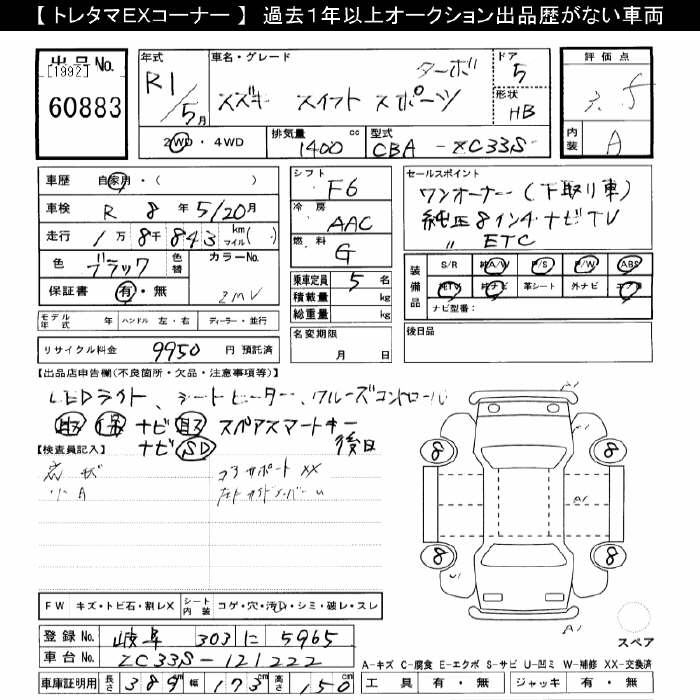 【 トレタマEXコーナー 】 過去1年以上オークション出品歴がない車両
出品No.
[1992]
60883
年式
R1/5月
車名・グレード
ターボ
スズキ スイフト スポーツ
ドア
5
形状
HB
評価点
5
内装
A
2WD・4WD
排気量 1400 cc
型式 CBA-ZC33S
車歴 自家用・( )
車検 R 8 年 5/20 月
走行 1万8千843 km マイル( )
色 ブラック
色替
カラーNo.
ZMV
保証書 有・無
シフト
F6
冷房
AAC
燃料
G
乗車定員 5 名
積載量 kg
総重量 kg
セールスポイント
ワンオーナー(下取り車)
純正8インチナビTV
〃 ETC
装備品
S/R 純A/W P/S P/W ABS
純TV 純ナビ 革シート 外ナビ エアB
ナビ型番:
モデル年式 年 ハンドル 左・右 ディーラー・並行
名変期限
月 日
後日品
リサイクル料金 9950 円 預託済
【出品店申告欄(不良箇所・欠品・注意事項等)】
LEDライト、シートヒーター、クルーズコントロール
取 保 ナビ取 スペアスマートキー
ナビSD 後日
【検査員記入】
A
コアサポートXX
FW キズ・トビ石・割レX
シート内装 コゲ・穴・汚レ・シミ・破レ・スレ
A1
8 8
A1
A1
8 8
U1
A1
スペア
登録No. 岐阜 303 に 5965
車台No. ZC33S-121222
A-キズ C-腐食 E-エクボ S-サビ U-凹ミ W-補修 XX-交換済
車庫証明用 長さ 389 幅 173 高さ 150 cm
工具 有・無 ジャッキ 有・無